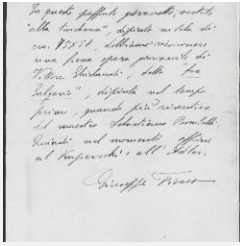 In questo paffuto giovanetto, vestito
"alla turchesca", dipinto su tela di
cm. 45X58, dobbiamo riconoscere
una prima opera giovanile di
Vittore Ghislandi, detto "fra
Galgario", dipinta nel tempo
primo, quando più risentiva
del maestro Sebastiano Bombelli.
Quindi nel momento affine
al Kupezky e all'Adler.
Giuseppe Fiocco